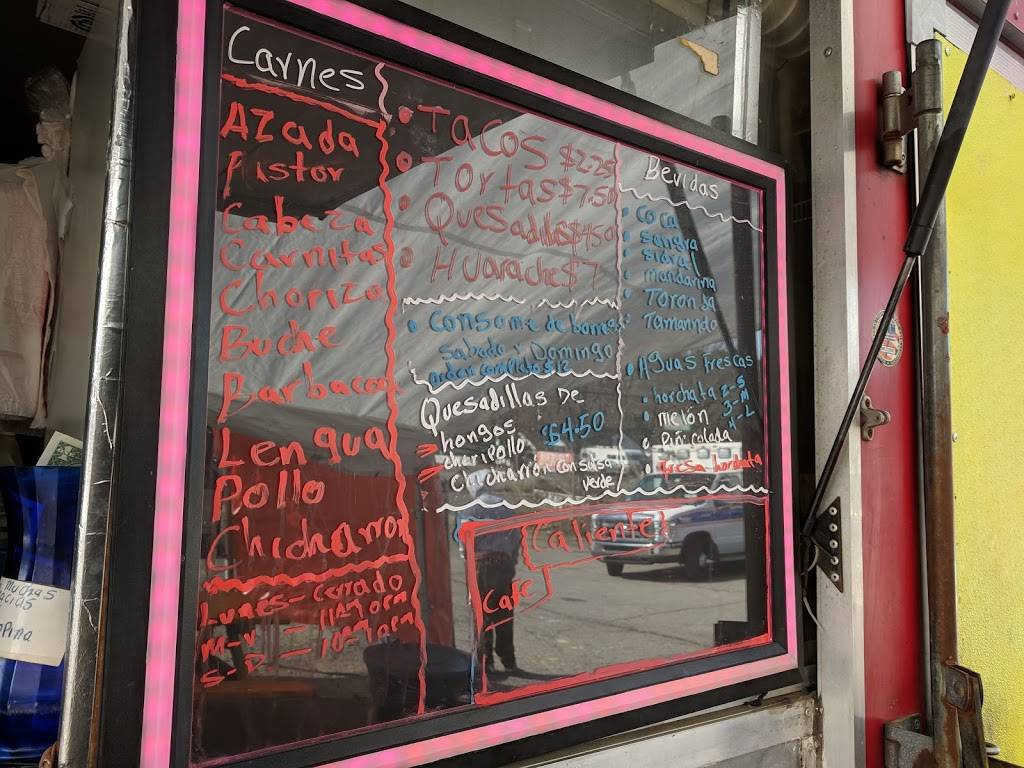 Carnes
Azada
Pastor
Cabeza
Carnitas
Chorizo
Buche
Barbacoa
Lengua
Pollo
Chicharron
Lunes - cerrado
M-V -
S-D -
Tacos $2.25
Tortas $7.50
Quesadillas $4.50
Huarache $7
Consome de borrego
Sabado y Domingo
orden completo $12
Quesadillas De
hongos $4.50
charipollo
Chicharron con salsa
verde
Bevidas
Coca
Sangra
Sidral
mandarina
Toronja
Tamarindo
Aguas Frescas
horchata 2-S
melón 3-M
Piñ colada 4-L
fresa horchata
Caliente
Cafe
Muchas